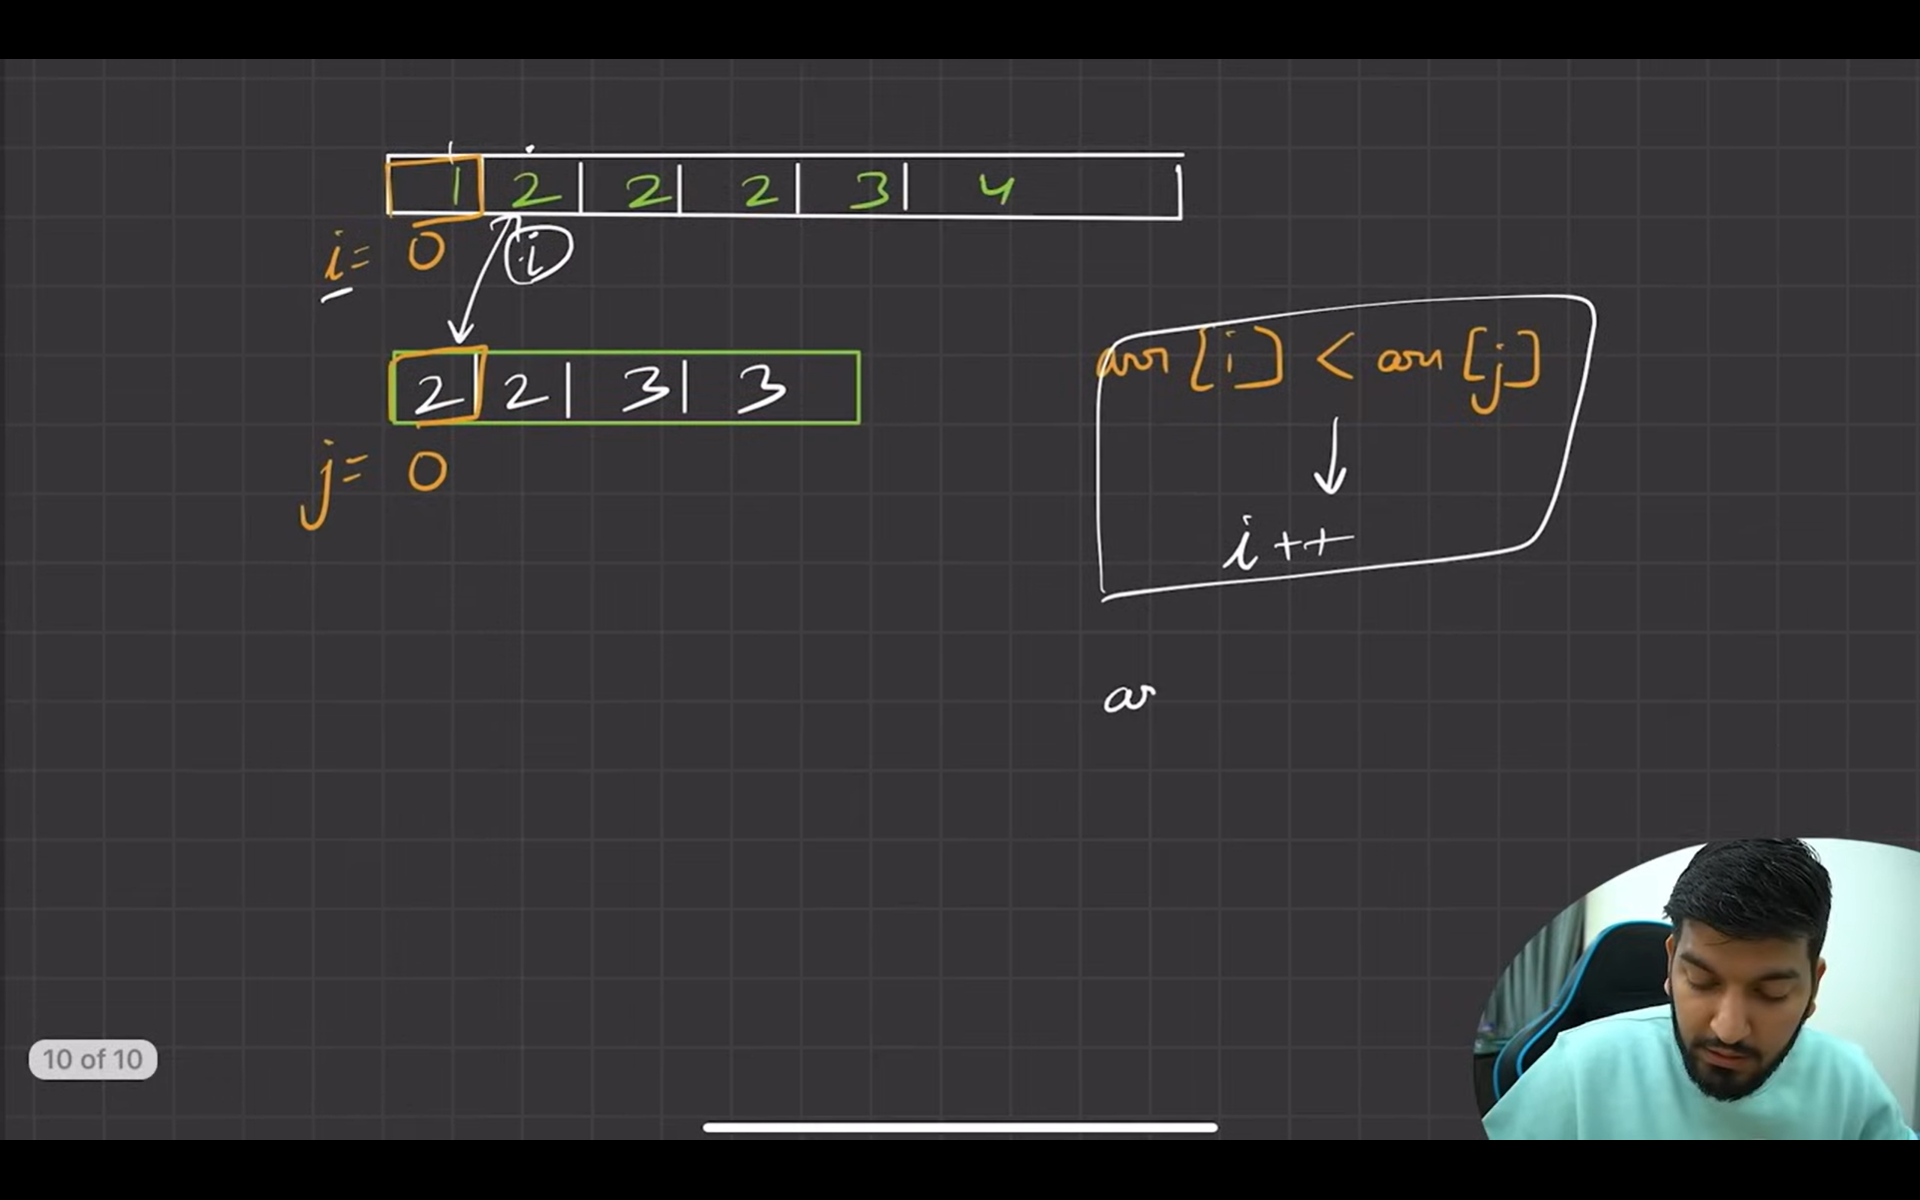 1 2 | 2 | 2 | 3 | 4
i = 0 i
2 | 2 | 3 | 3
arr [i] < arr [j]
j = 0
i++
ar
10 of 10